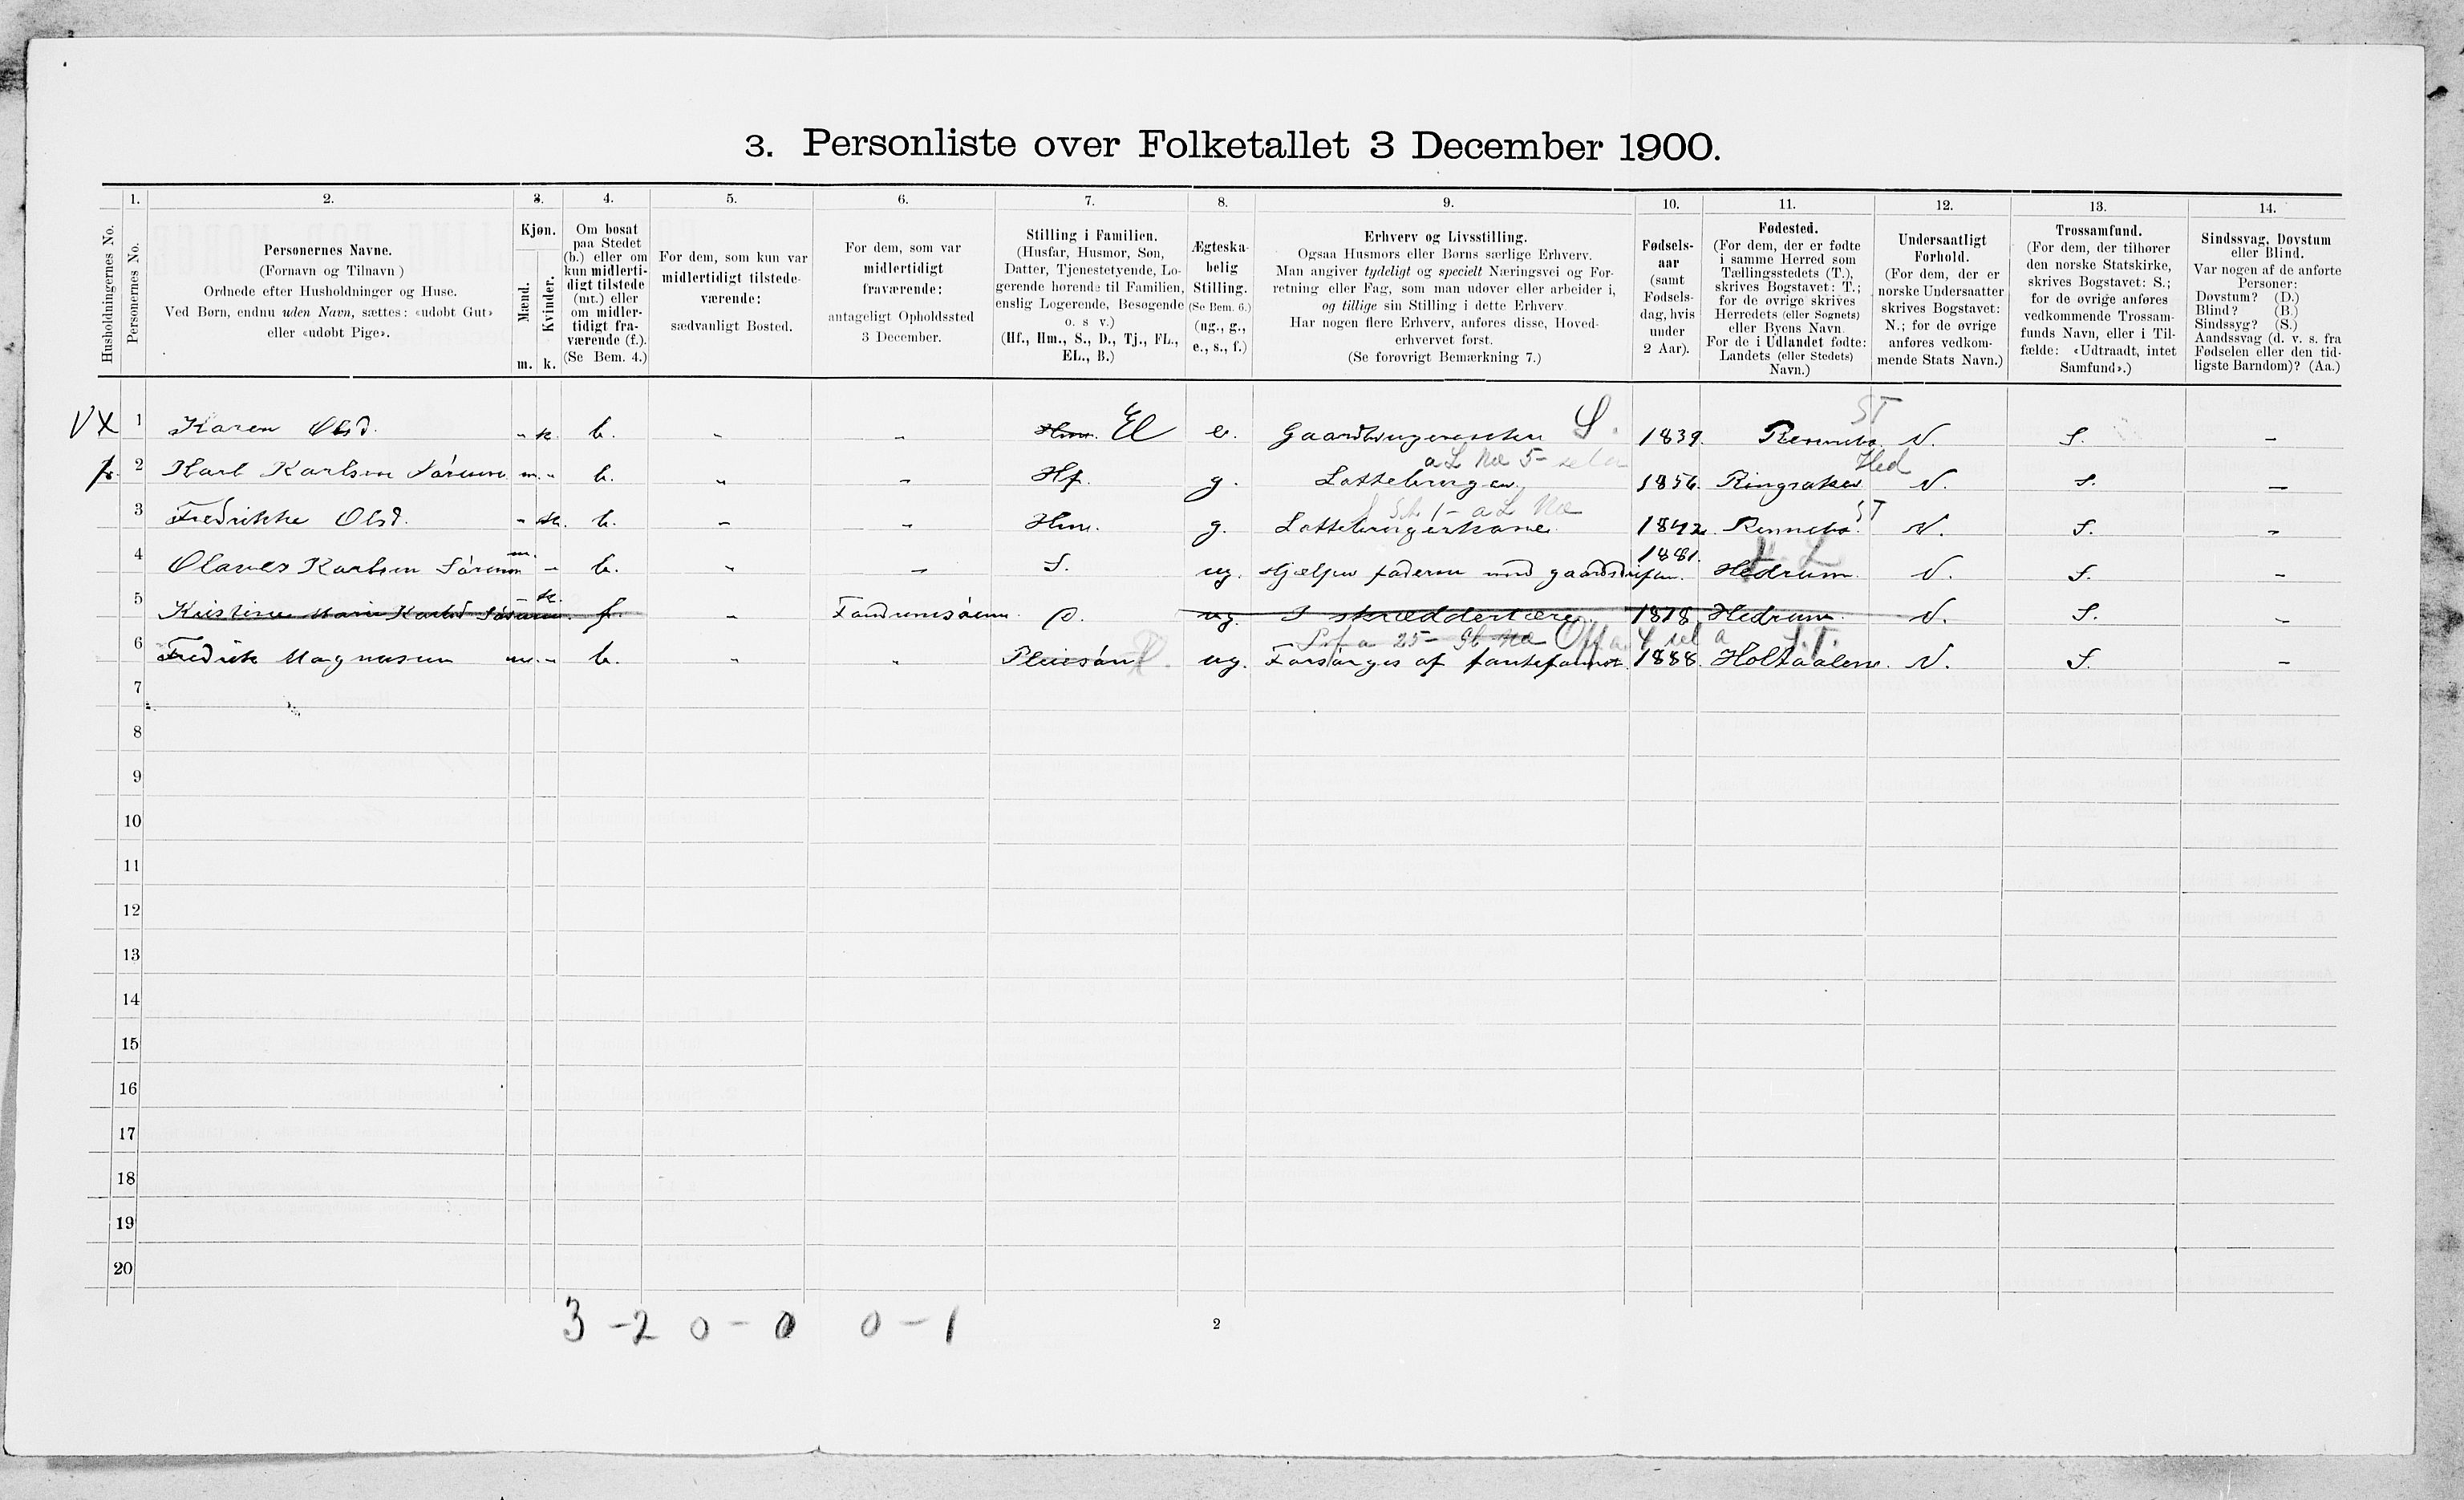 3. Personliste over Folketallet 3 December 1900.
1. 2. 3. 4. 5. 6. 7. 8. 9. 10. 11. 12. 13. 14.
Husholdningernes No.
Personernes No.
Personernes Navne.
(Fornavn og Tilnavn )
Ordnede efter Husholdninger og Huse.
Ved Børn, endnu uden Navn, sættes: «udøbt Gut»
eller «udøbt Pige».
Kjøn.
Mænd.
Kvinder.
m. k.
Om bosat
paa Stedet
(b.) eller om
kun midlerti-
digt tilstede
(mt.) eller
om midler-
tidigt fra-
værende (f.).
(Se Bem. 4.)
For dem, som kun var
midlertidigt tilstede-
værende:
sædvanligt Bosted.
For dem, som var
midlertidigt
fraværende:
antageligt Opholdssted
3 December.
Stilling i Familien.
(Husfar, Husmor, Søn,
Datter, Tjenestetyende, Lo-
gerende hørende til Familien,
enslig Logerende, Besøgende
o. s v.)
(Hf., Hm., S., D., Tj., FL.,
EL., B.)
Ægteska-
belig
Stilling.
(Se Bem. 6.)
(ug., g.,
e., s., f.)
Erhverv og Livsstilling.
Ogsaa Husmors eller Børns særlige Erhverv.
Man angiver tydeligt og specielt Næringsvei og For-
retning eller Fag, som man udøver eller arbeider i,
og tillige sin Stilling i dette Erhverv.
Har nogen flere Erhverv, anføres disse, Hoved-
erhvervet først.
(Se forøvrigt Bemærkning 7.)
Fødsels-
aar
(samt
Fødsels-
dag, hvis
under
2 Aar).
Fødested.
(For dem, der er fødte
i samme Herred som
Tællingsstedets (T.),
skrives Bogstavet: T.;
for de øvrige skrives
Herredets (eller Sognets)
eller Byens Navn.
For de i Udlandet fødte:
Landets (eller Stedets)
Navn.)
Undersaatligt
Forhold.
(For dem, der er
norske Undersaatter
skrives Bogstavet:
N.; for de øvrige
anføres vedkom-
mende Stats Navn.)
Trossamfund.
(For dem, der tilhører
den norske Statskirke,
skrives Bogstavet: S.;
for de øvrige anføres
vedkommende Trossam-
funds Navn, eller i Til-
fælde: «Udtraadt, intet
Samfund».)
Sindssvag, Døvstum
eller Blind.
Var nogen af de anførte
Personer:
Døvstum? (D.)
Blind? (B.)
Sindssyg? (S.)
Aandssvag (d. v. s. fra
Fødselen eller den tid-
ligste Barndom)? (Aa.)
ST
VX 1 Karen Olsd. " k. b. " " Hm. El e. S. 1839. Rennebo. N. S. –
Hed
2 Karl Karlsen Sørum m. " b. " " Hf. g. 1856. Ringsaker N. S. –
ST
3 Fredrikke Olsd. " k. b. " " Hm. g. 1842. Rennebo. N. S. –
4 Olaves Karlsen Sørum m. – b. " – S. ug. Hjælper faderen med gaardsdriften. 1881. Hedrum. N. S. –
5 Kristine Marie Karlsd Sørum – k. f. – D. ug. I skrædderlære. 1878 Hedrum. N. S. –
S.T.
6 Fredrik Magnusen m. – b. " " Pleiesøn. ug. Forsørges af 1888. Holtaalen. N. S. –
7
8
9
10
11
12
13
14
15
16
17
18
19
20
3 – 2 0 – 0 0 – 1
2